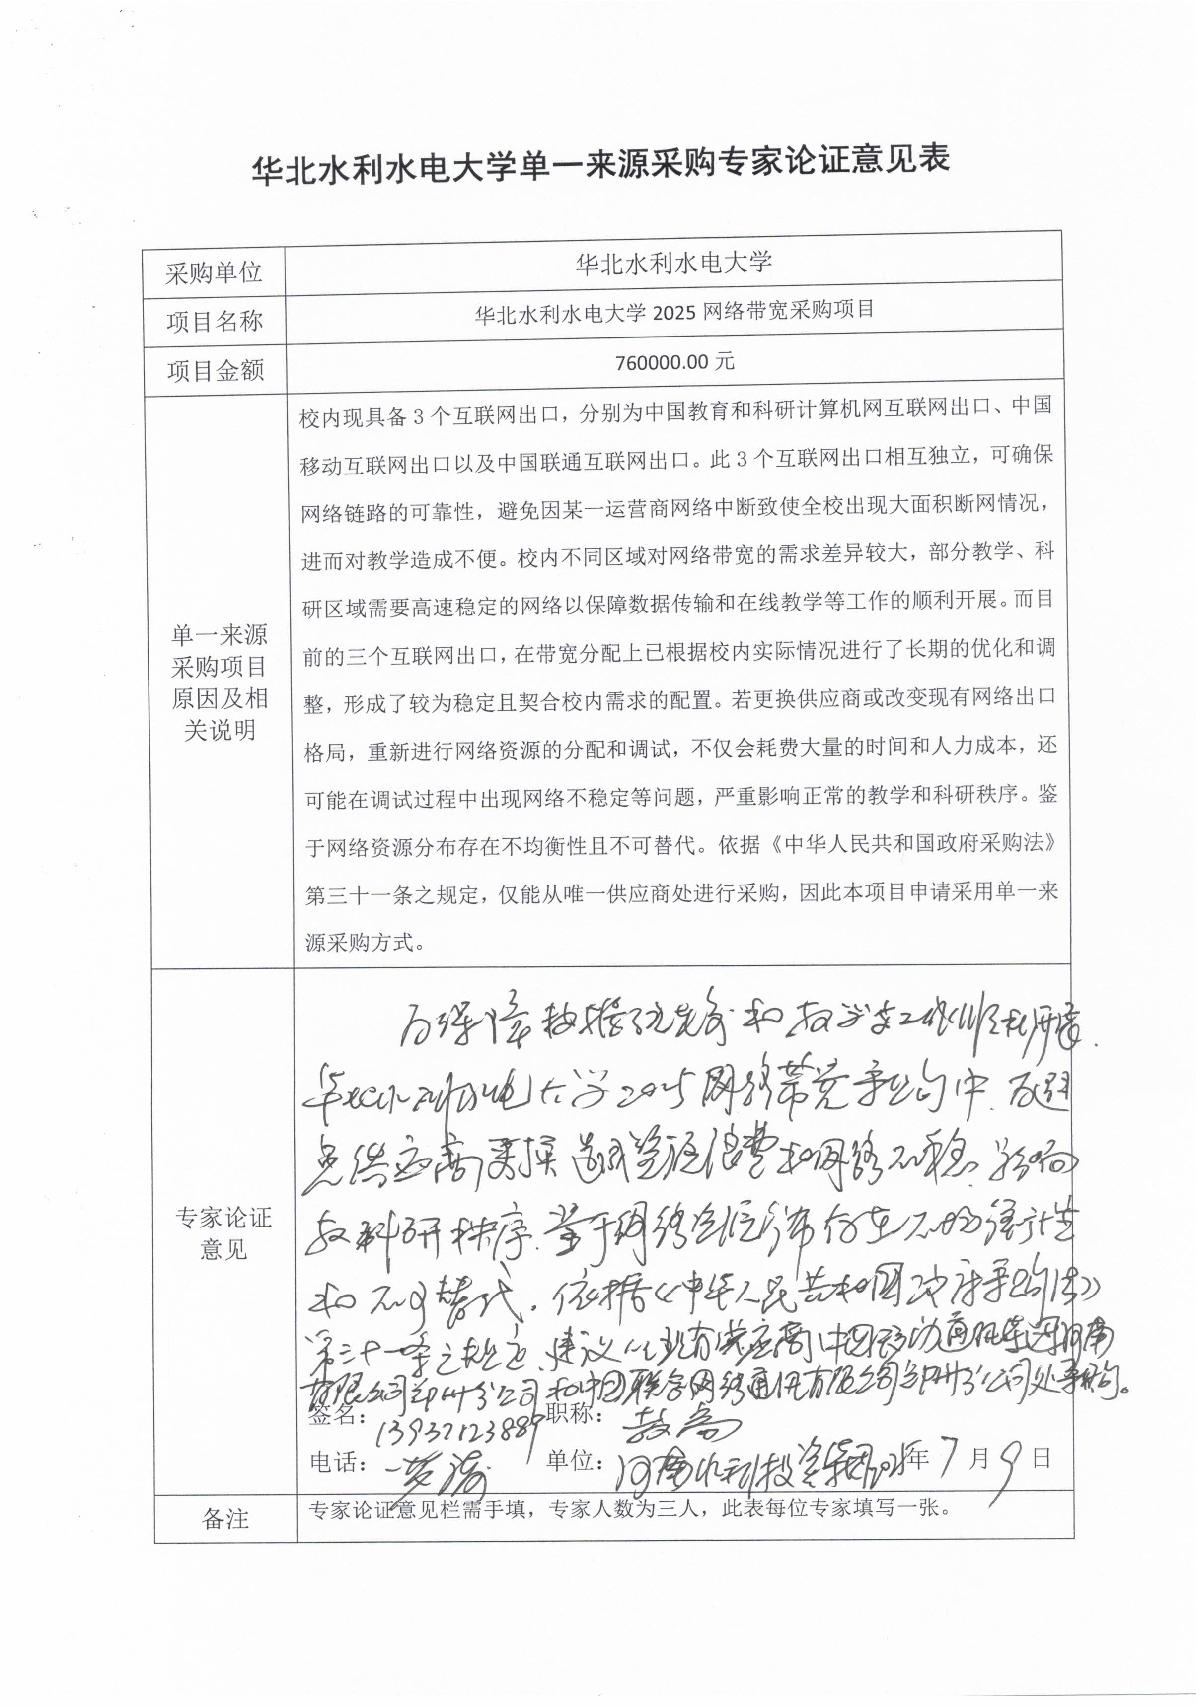 华北水利水电大学单一来源采购专家论证意见表
采购单位
华北水利水电大学
项目名称
华北水利水电大学 2025 网络带宽采购项目
项目金额
760000.00 元
单一来源
采购项目
原因及相
关说明
校内现具备 3 个互联网出口，分别为中国教育和科研计算机网互联网出口、中国
移动互联网出口以及中国联通互联网出口。此 3 个互联网出口相互独立，可确保
网络链路的可靠性，避免因某一运营商网络中断致使全校出现大面积断网情况，
进而对教学造成不便。校内不同区域对网络带宽的需求差异较大，部分教学、科
研区域需要高速稳定的网络以保障数据传输和在线教学等工作的顺利开展。而目
前的三个互联网出口，在带宽分配上已根据校内实际情况进行了长期的优化和调
整，形成了较为稳定且契合校内需求的配置。若更换供应商或改变现有网络出口
格局，重新进行网络资源的分配和调试，不仅会耗费大量的时间和人力成本，还
可能在调试过程中出现网络不稳定等问题，严重影响正常的教学和科研秩序。鉴
于网络资源分布存在不均衡性且不可替代。依据《中华人民共和国政府采购法》
第三十一条之规定，仅能从唯一供应商处进行采购，因此本项目申请采用单一来
源采购方式。
专家论证
意见
为保障 和教学等工作顺利开展.
华北水利水电大学2025网络带宽采购中, 为避
免供应商更换造成资源浪费和网络不稳, 影响
教科研秩序. 鉴于网络资源分布存在不均衡性
和不可替代. 依据《中华人民共和国政府采购法》
第三十一条之规定, 建议从现有供应商中国移动通信集团河南
有限公司郑州分公司和中国联合网络通信有限公司郑州分公司处采购。
签名： 13937123889 职称： 教高
电话： 单位： 河南水利投资集团 2025年 7 月 9 日
备注
专家论证意见栏需手填，专家人数为三人，此表每位专家填写一张。